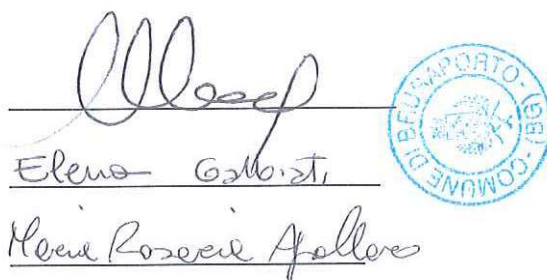 Elena Galbiati
Maria Rosaria Apollaro
COMUNE DI BRUSAPORTO - (BG) -